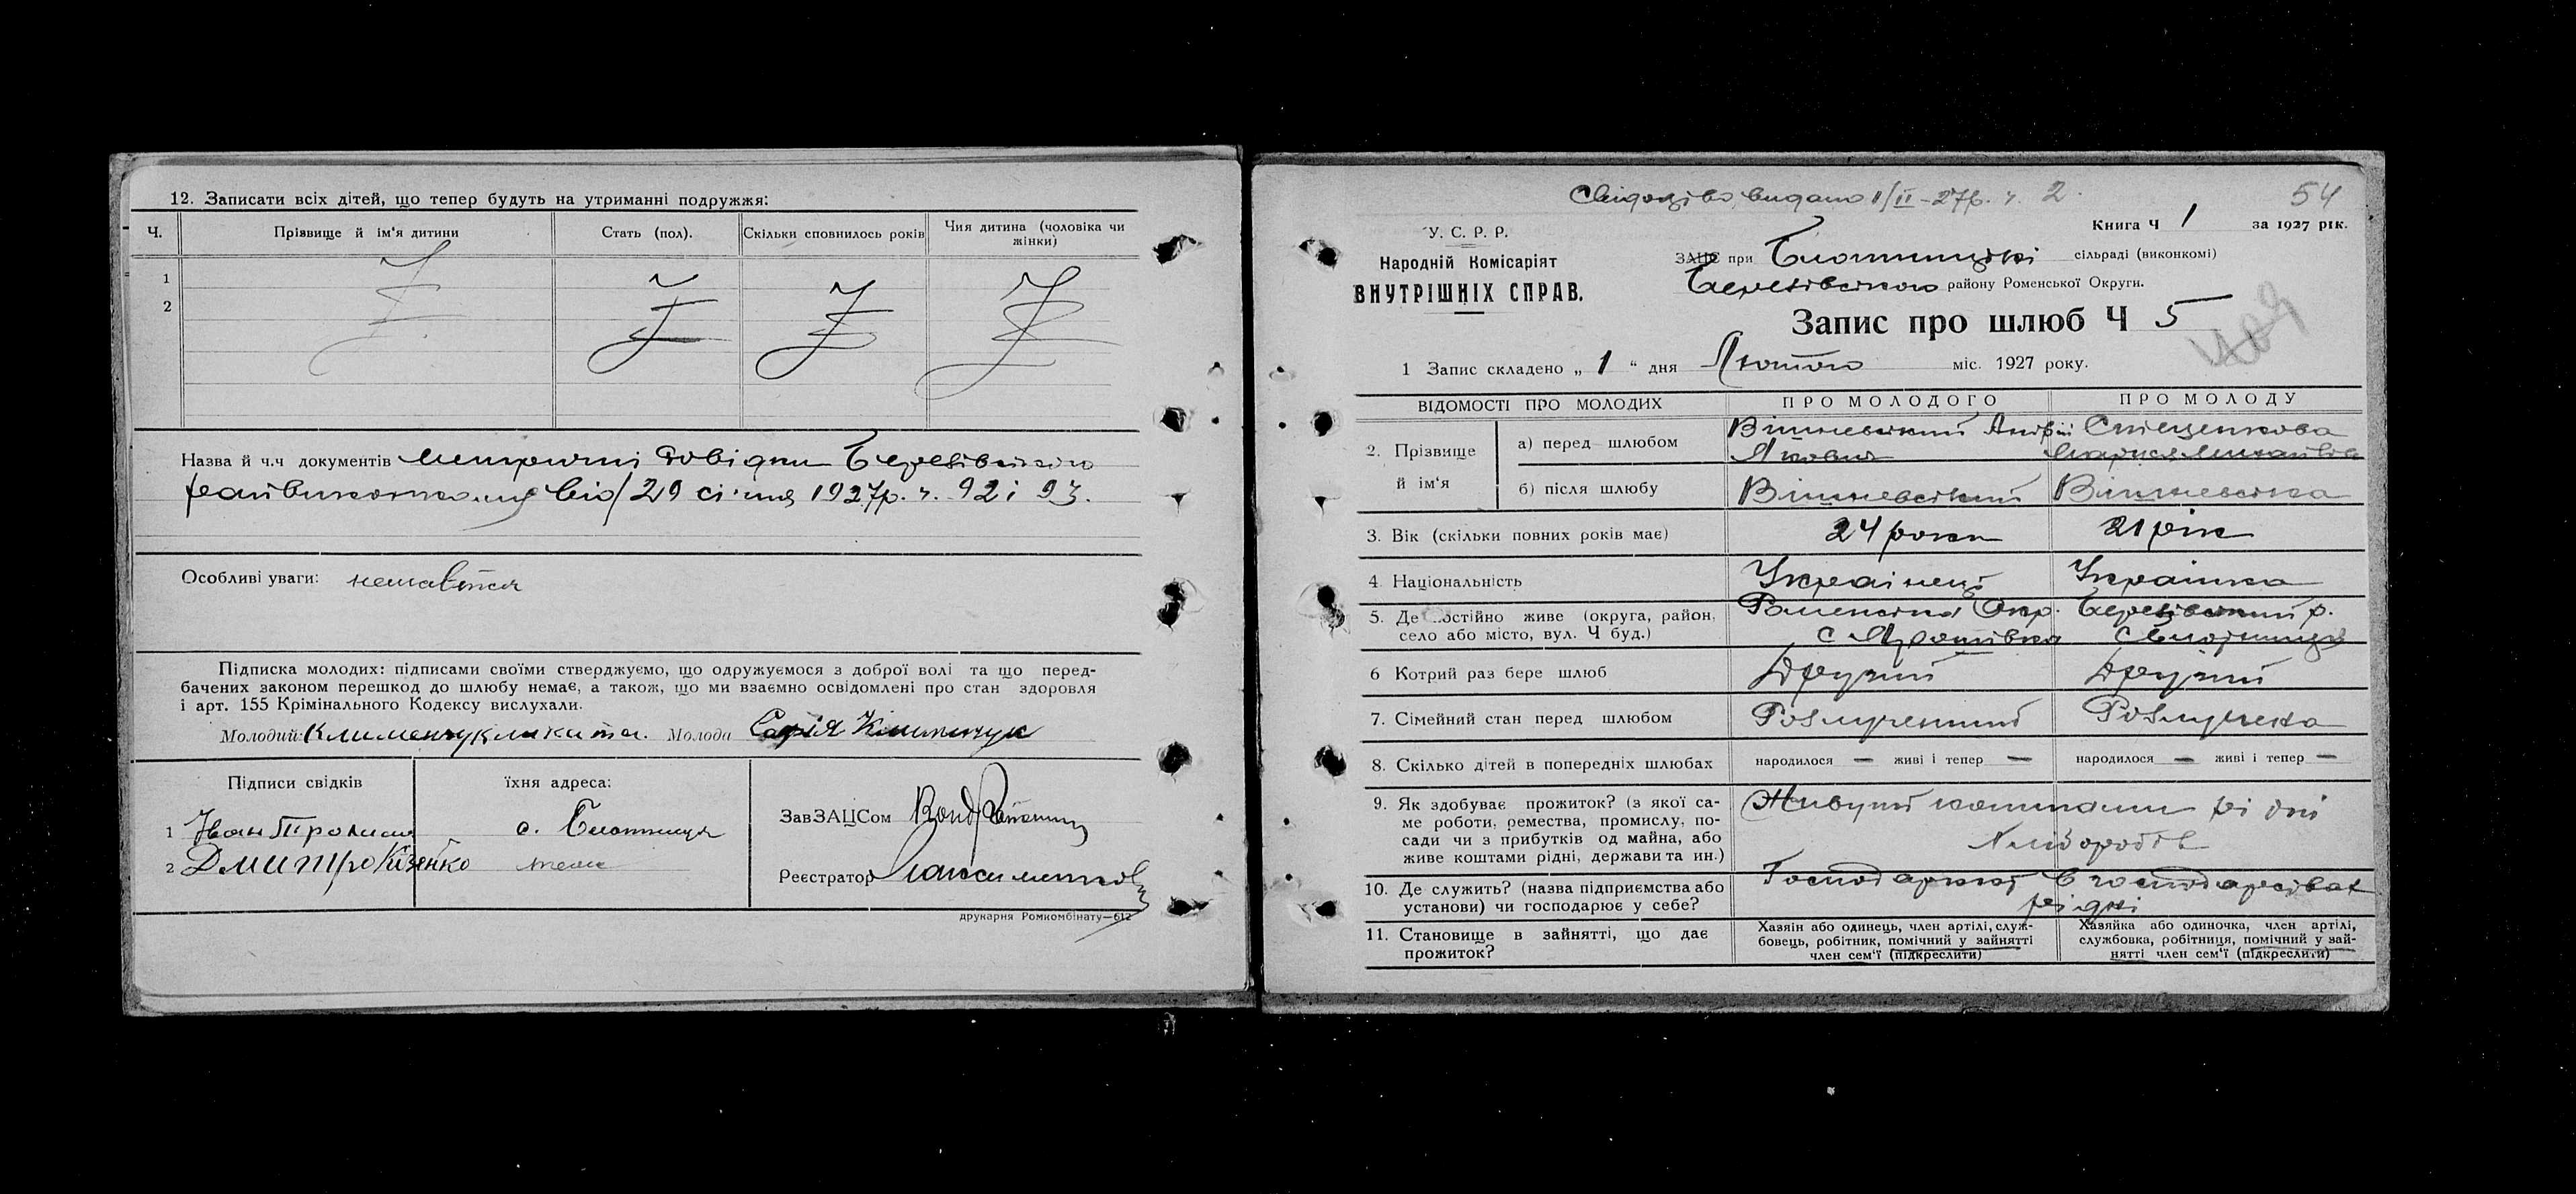 12. Записати всіх дітей, що тепер будуть на утриманні подружжя:
Ч.
Прізвище й ім'я дитини
Стать (пол).
Скільки сповнилось років
Чия дитина (чоловіка чи жінки)
1
2
Назва й ч.ч документів Метричні довідки Березівського
райвиконкому від 29 січня 1927р. ч. 92 і 93.
Особливі уваги:
Підписка молодих: підписами своїми стверджуємо, що одружуємося з доброї волі та що перед-
бачених законом перешкод до шлюбу немає, а також, що ми взаємно освідомлені про стан здоровля
і арт. 155 Крімінального Кодексу вислухали.
Молодий: Клименчук Микита. Молода Софія Клименчук
Підписи свідків
їхня адреса:
1 Іван с. Блотниця
2 Дмитро Кізенко теж
ЗавЗАЦСом
Реєстратор
друкарня Ромкомбінату—612
Свідоцтво видано 1/II-27р. ч. 2.
54
У. С. Р. Р.
Народній Комісаріят
ВНУТРІШНІХ СПРАВ.
Книга Ч 1 за 1927 рік.
ЗАЦС при Блотницькі сільраді (виконкомі)
Березівського району Роменської Округи.
Запис про шлюб Ч 5
1 Запис складено „ 1 “ дня Лютого міс. 1927 року.
ВІДОМОСТІ ПРО МОЛОДИХ
ПРО МОЛОДОГО
ПРО МОЛОДУ
2. Прізвище й ім'я
а) перед шлюбом
Вішневський Андрій
Якович
Стеценкова
Марія Михайлівна
б) після шлюбу
Вішневський
Вішневська
3. Вік (скільки повних років має)
24 роки
21 рік
4. Національність
Українець
Українка
5. Де постійно живе (округа, район,
село або місто, вул. Ч буд.)
Роменська Окр. Березівський р.
с Ярошівка
с Блотниця
6 Котрий раз бере шлюб
Другий
Другий
7. Сімейний стан перед шлюбом
Розлучений
Розлучена
8. Скілько дітей в попередніх шлюбах
народилося — живі і тепер —
народилося — живі і тепер —
9. Як здобуває прожиток? (з якої са-
ме роботи, ремества, промислу, по-
сади чи з прибутків од майна, або
живе коштами рідні, держави та ин.)
Живуть коштами рідні
Хліборобів
10. Де служить? (назва підприємства або
установи) чи господарює у себе?
Господарюють в господарствах
рідні
11. Становище в зайнятті, що дає
прожиток?
Хазяін або одинець, член артілі, служ-
бовець, робітник, помічний у зайнятті
член сем'ї (підкреслити)
Хазяйка або одиночка, член артілі,
службовка, робітниця, помічний у зай-
нятті член сем'ї (підкреслити)